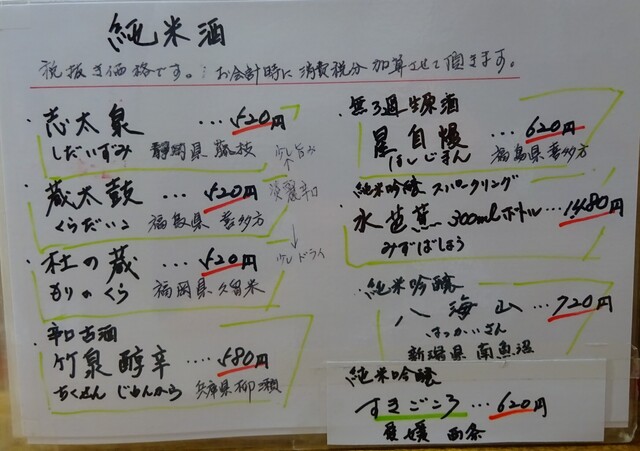 純米酒
税抜き価格です。お会計時に消費税分加算させて頂きます。
志太泉 … 520円
しだいずみ 静岡県 藤枝
少し旨み
蔵太鼓 … 520円
くらだいこ 福島県 喜多方
淡麗辛口
杜の蔵 … 520円
もりのくら 福岡県久留米
少しドライ
辛口古酒
竹泉 醇辛 … 580円
ちくせん じゅんから 兵庫県
無ろ過生原酒
星自慢 … 620円
ほしじまん 福島県喜多方
純米吟醸 スパークリング
水芭蕉 300mlボトル … 1,480円
みずばしょう
純米吟醸
八海山 … 720円
はっかいさん
新潟県 南魚沼
純米吟醸
すきごころ … 620円
愛媛 西条